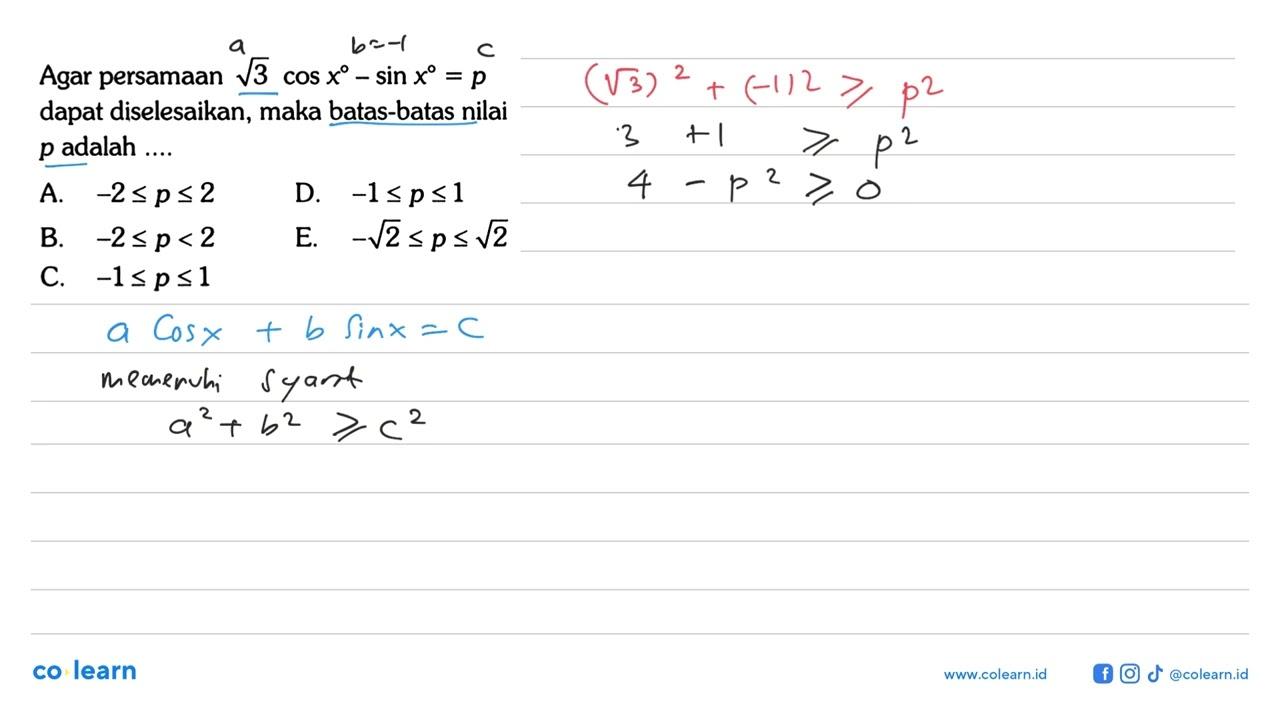 a b=-1 c
Agar persamaan √3 cos x° – sin x° = p
dapat diselesaikan, maka batas-batas nilai
p adalah ....
A. –2 ≤ p ≤ 2 D. –1 ≤ p ≤ 1
B. –2 ≤ p < 2 E. –√2 ≤ p ≤ √2
C. –1 ≤ p ≤ 1
a Cos x + b Sin x = C
memenuhi syarat
a² + b² ≥ c²
(√3)² + (-1)2 ≥ p²
3 +1 ≥ p²
4 - p² ≥ 0
co learn
www.colearn.id
@colearn.id